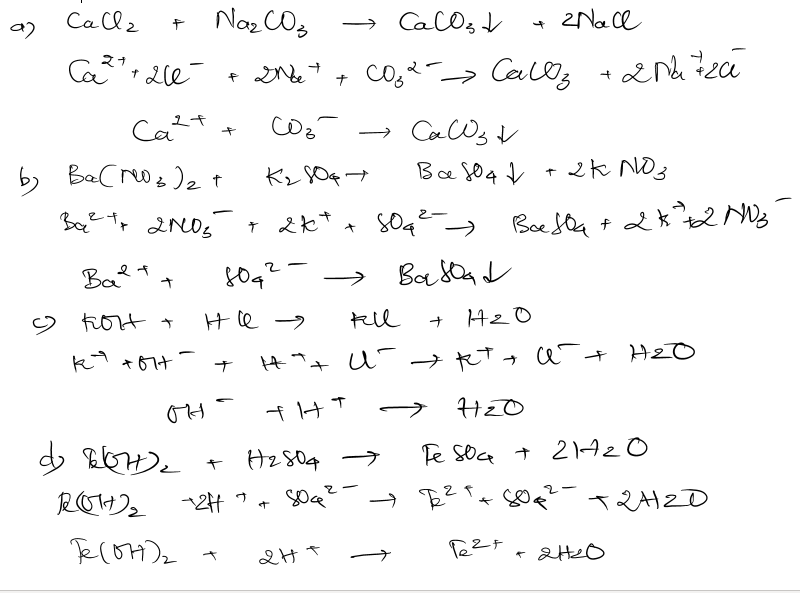 a) CaCl2 + Na2CO3 → CaCO3↓ + 2NaCl
Ca²⁺ + 2Cl⁻ + 2Na⁺ + CO3²⁻ → CaCO3 + 2Na⁺ + 2Cl⁻
Ca²⁺ + CO3⁻ → CaCO3↓
b) Ba(NO3)2 + K2SO4 → BaSO4↓ + 2KNO3
Ba²⁺ + 2NO3⁻ + 2K⁺ + SO4²⁻ → BaSO4 + 2K⁺ + 2NO3⁻
Ba²⁺ + SO4²⁻ → BaSO4↓
c) KOH + HCl → KCl + H2O
K⁺ + OH⁻ + H⁺ + Cl⁻ → K⁺ + Cl⁻ + H2O
OH⁻ + H⁺ → H2O
d) Fe(OH)2 + H2SO4 → FeSO4 + 2H2O
Fe(OH)2 + 2H⁺ + SO4²⁻ → Fe²⁺ + SO4²⁻ + 2H2O
Fe(OH)2 + 2H⁺ → Fe²⁺ + 2H2O